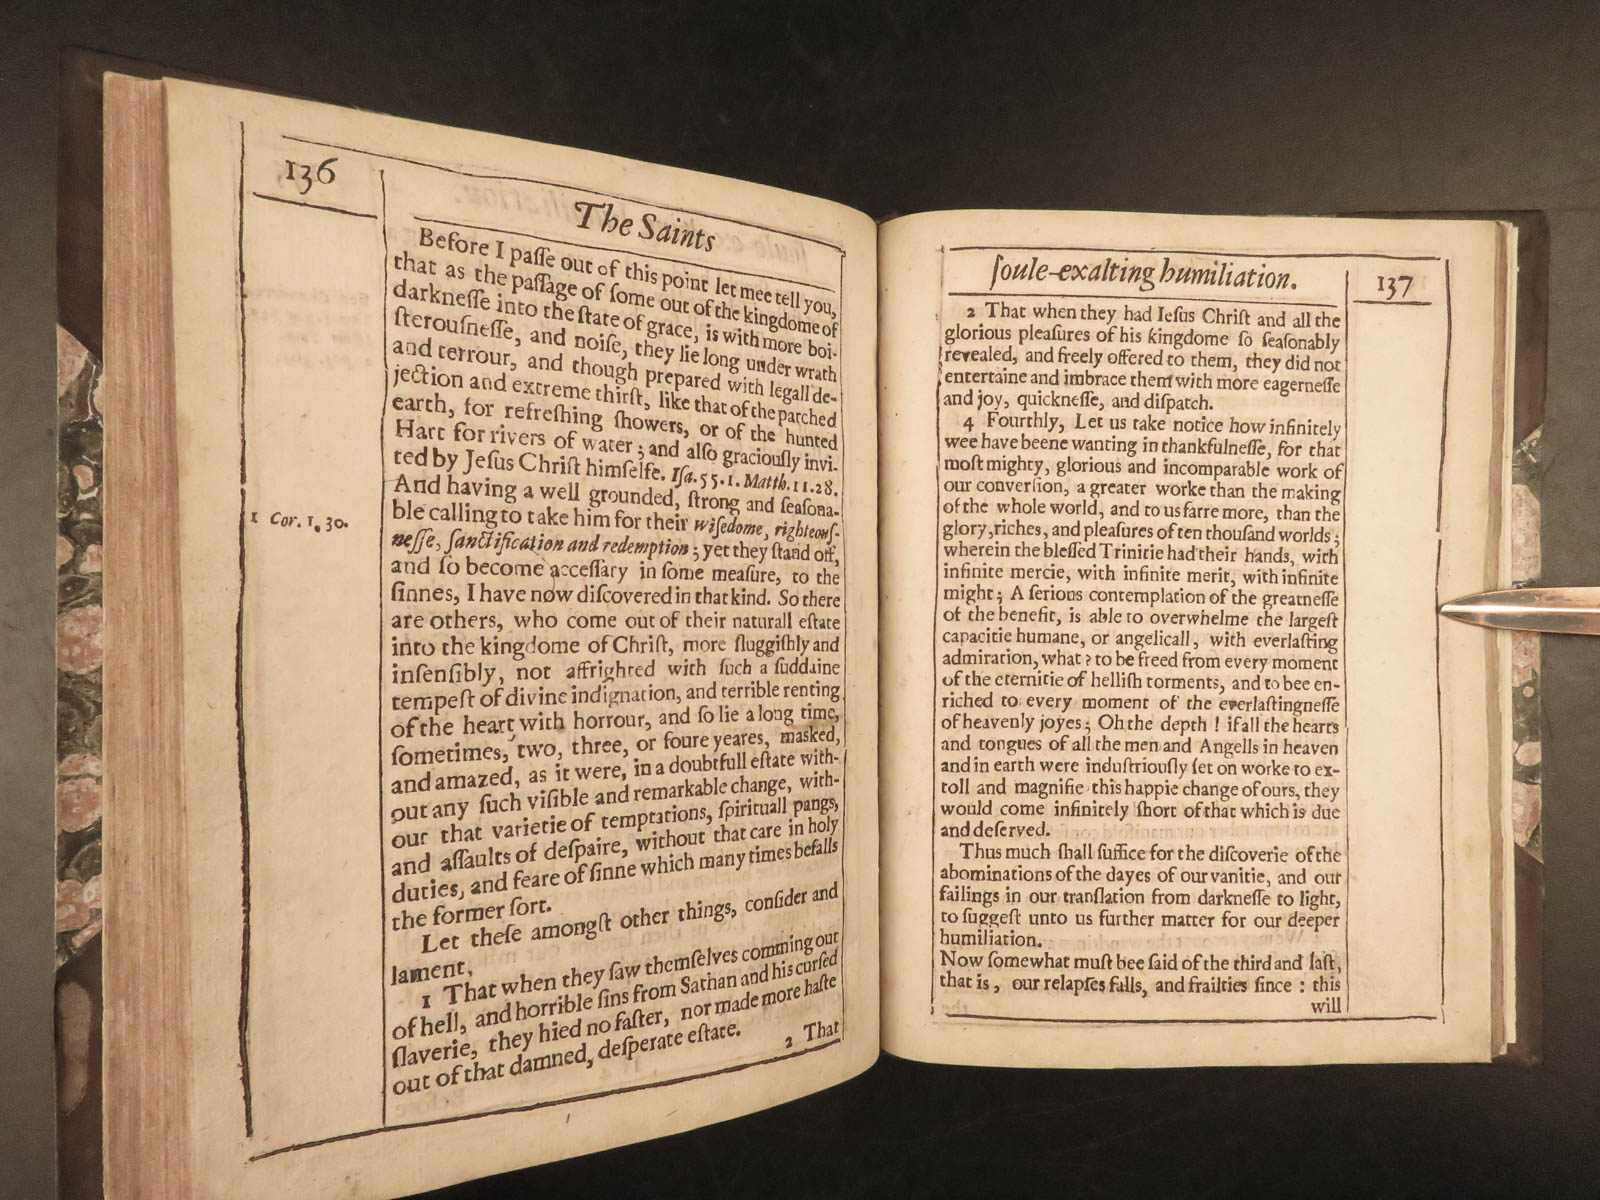 136
The Saints
Before I paſſe out of this point let mee tell you,
that as the paſſage of ſome out of the kingdome of
darkneſſe into the ſtate of grace, is with more boi-
ſterouſneſſe, and noiſe, they lie long under wrath
and terrour, and though prepared with legall de-
jection and extreme thirſt, like that of the parched
earth, for refreſhing ſhowers, or of the hunted
Hart for rivers of water; and alſo graciouſly invi-
ted by Jeſus Chriſt himſelfe. Iſa. 55. 1. Matth. 11. 28.
And having a well grounded, ſtrong and ſeaſona-
ble calling to take him for their wiſedome, righteouſ-
neſſe, ſanctification and redemption; yet they ſtand off,
and ſo become acceſſary in ſome meaſure, to the
ſinnes, I have now diſcovered in that kind. So there
are others, who come out of their naturall eſtate
into the kingdome of Chriſt, more ſluggiſhly and
inſenſibly, not affrighted with ſuch a ſuddaine
tempeſt of divine indignation, and terrible renting
of the heart with horrour, and ſo lie a long time,
ſometimes, two, three, or foure yeares, masked,
and amazed, as it were, in a doubtfull eſtate with-
out any ſuch viſible and remarkable change, with-
out that varietie of temptations, ſpirituall pangs,
and aſſaults of deſpaire, without that care in holy
duties, and feare of ſinne which many times befalls
the former ſort.
Let theſe amongſt other things, conſider and
lament,
1 That when they ſaw themſelves comming out
of hell, and horrible ſins from Sathan and his curſed
ſlaverie, they hied no faſter, nor made more haſte
out of that damned, deſperate eſtate.
2 That
1 Cor. 1. 30.
ſoule-exalting humiliation.
137
2 That when they had Ieſus Chriſt and all the
glorious pleaſures of his kingdome ſo ſeaſonably
revealed, and freely offered to them, they did not
entertaine and imbrace them with more eagerneſſe
and joy, quickneſſe, and diſpatch.
4 Fourthly, Let us take notice how infinitely
wee have beene wanting in thankfulneſſe, for that
moſt mighty, glorious and incomparable work of
our converſion, a greater worke than the making
of the whole world, and to us farre more, than the
glory, riches, and pleaſures of ten thouſand worlds;
wherein the bleſſed Trinitie had their hands, with
infinite mercie, with infinite merit, with infinite
might; A ſerious contemplation of the greatneſſe
of the benefit, is able to overwhelme the largeſt
capacitie humane, or angelicall, with everlaſting
admiration, what? to be freed from every moment
of the eternitie of helliſh torments, and to bee en-
riched to every moment of the everlaſtingneſſe
of heavenly joyes; Oh the depth! if all the hearts
and tongues of all the men and Angells in heaven
and in earth were induſtriouſly ſet on worke to ex-
toll and magnifie this happie change of ours, they
would come infinitely ſhort of that which is due
and deſerved.
Thus much ſhall ſuffice for the diſcoverie of the
abominations of the dayes of our vanitie, and our
failings in our tranſlation from darkneſſe to light,
to ſuggeſt unto us further matter for our deeper
humiliation.
Now ſomewhat muſt bee ſaid of the third and laſt,
that is, our relapſes falls, and frailties ſince: this
will